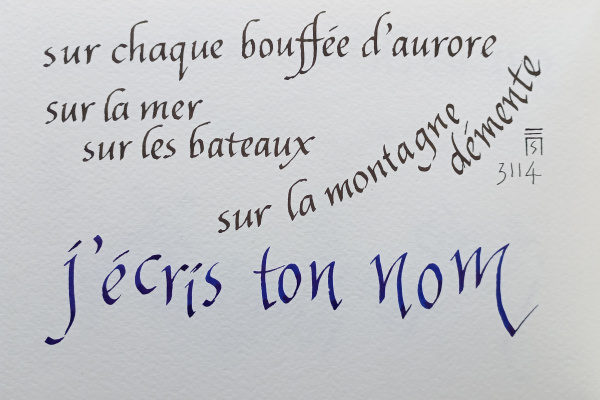 sur chaque bouffée d'aurore
sur la mer
sur les bateaux
sur la montagne
démente
3114
j'écris ton nom